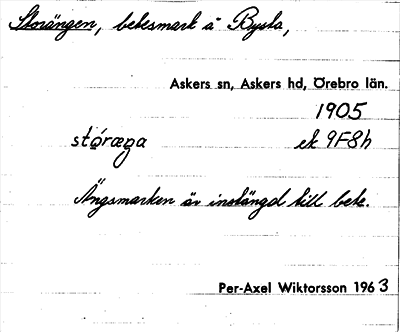 Storängen, betesmark å Bysta,
Askers sn, Askers hd, Örebro län.
1905
stóræŋa ek 9F8h
Ängsmarken är instängd till bete.
Per-Axel Wiktorsson 1963